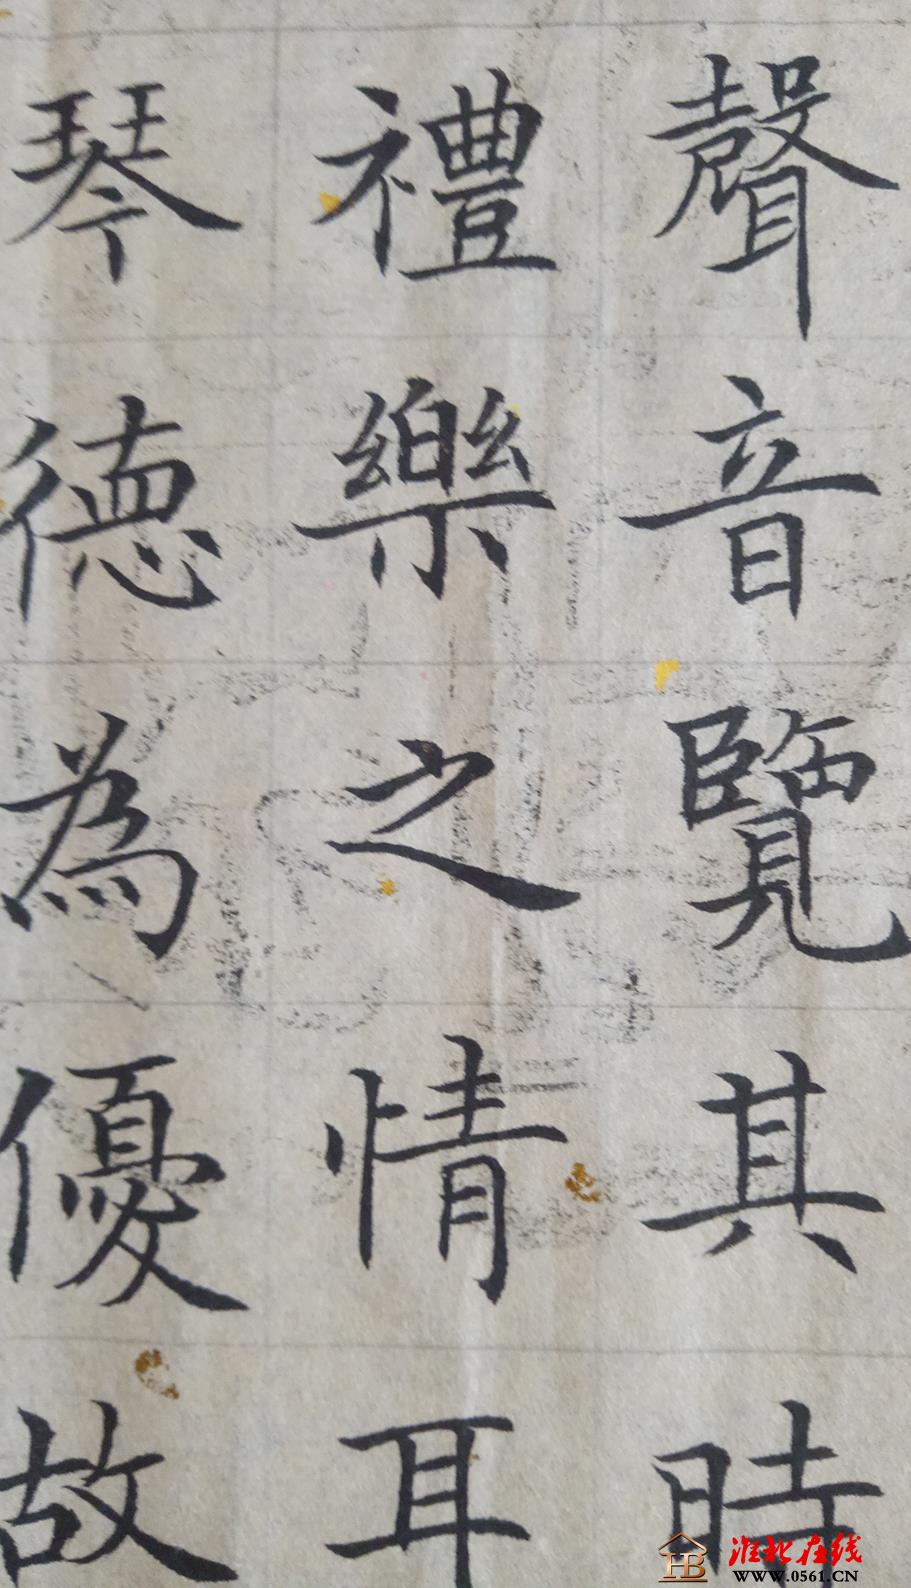 聲音覽其時
禮樂之情耳
琴德為優故
HB
淮北在线
www.0561.CN